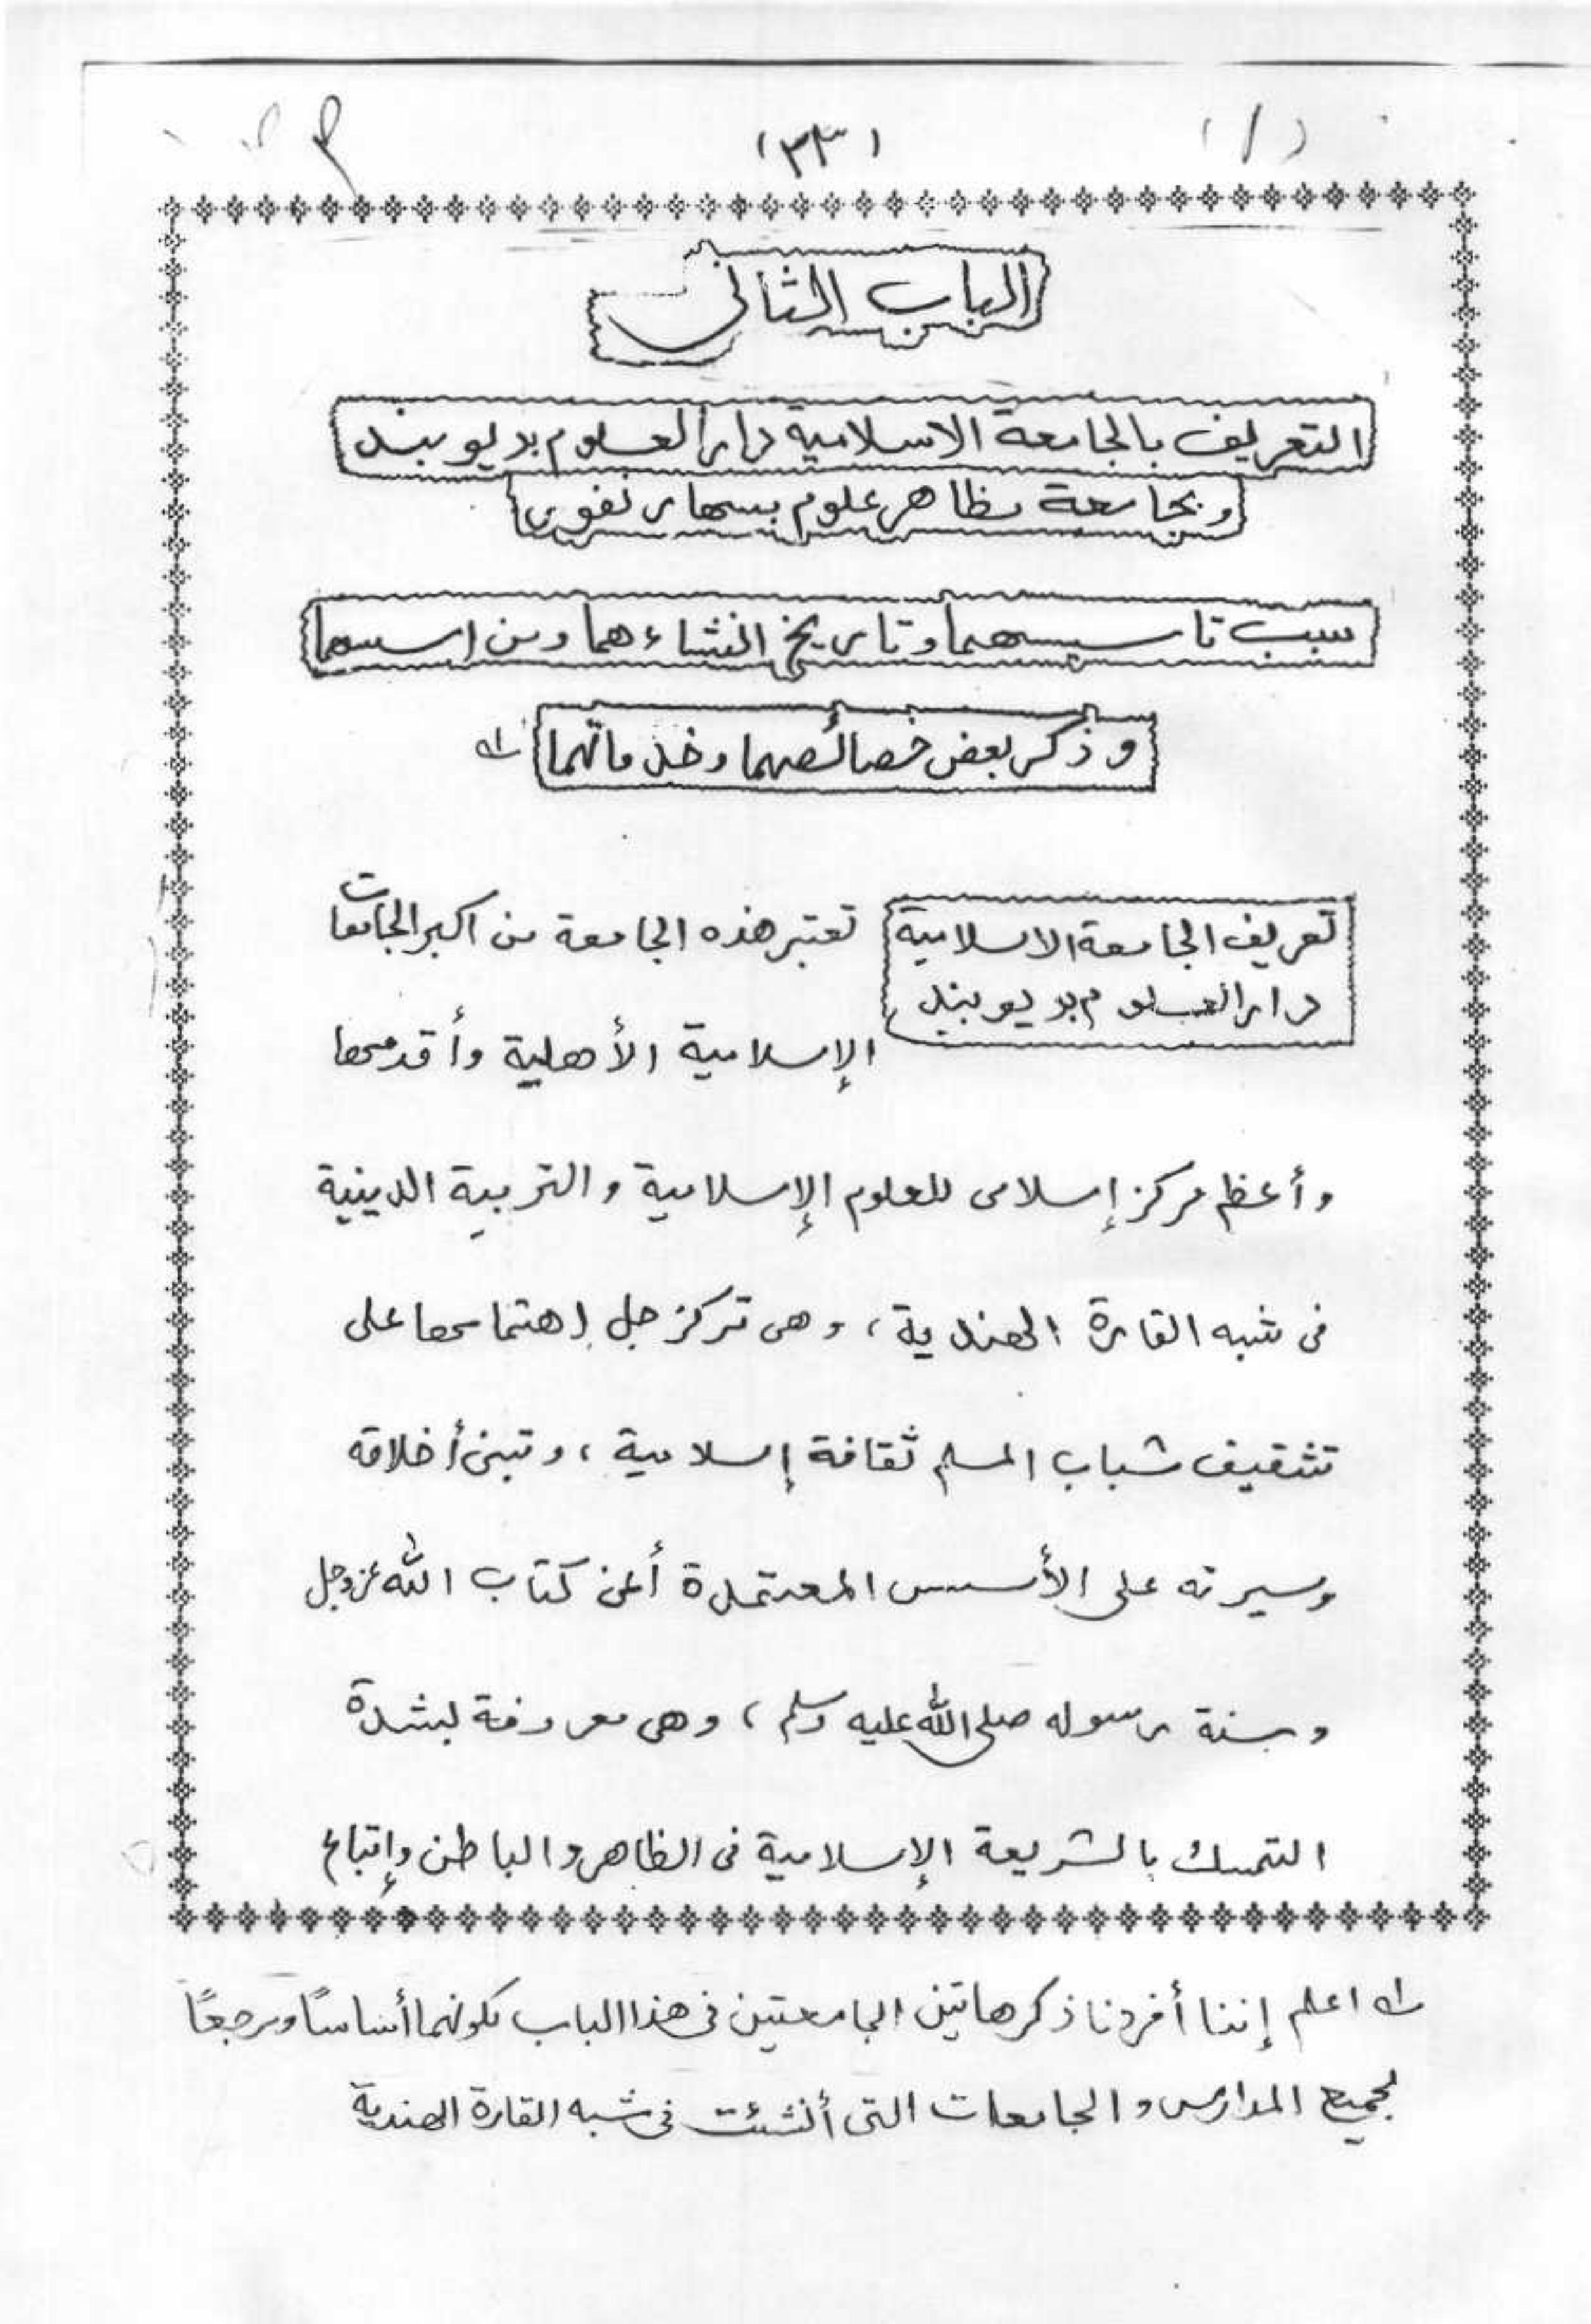 (٣٣)
(١)
الباب الثانى
التعريف بالجامعة الاسلامية دار العلوم بديوبند
وبجامعة مظاهر علوم بسهارنفور
سبب تاسيسهما وتاريخ انشاءهما ومن اسسهما
وذكر بعض خصائصهما وخدماتهما ؎١
تعريف الجامعة الاسلامية
دار العلوم بديوبند
تعتبر هذه الجامعة من اكبر الجامعات
الإسلامية الأهلية وأقدمها
وأعظم مركز إسلامى للعلوم الإسلامية والتربية الدينية
فى شبه القارة الهندية، وهى تركز جل إهتمامها على
تثقيف شباب المسلم ثقافة إسلامية، وتبنى أخلاقه
وسيرته على الأسس المعتمدة أعنى كتاب الله عز وجل
وسنة رسوله صلى الله عليه وسلم، وهى معروفة بشدة
التمسك بالشريعة الإسلامية فى الظاهر والباطن وإتباع
؎١ اعلم إننا أفردنا ذكر هاتين الجامعتين فى هذا الباب لكونهما أساسًا ومرجعًا
لجميع المدارس والجامعات التى أنشئت فى شبه القارة الهندية